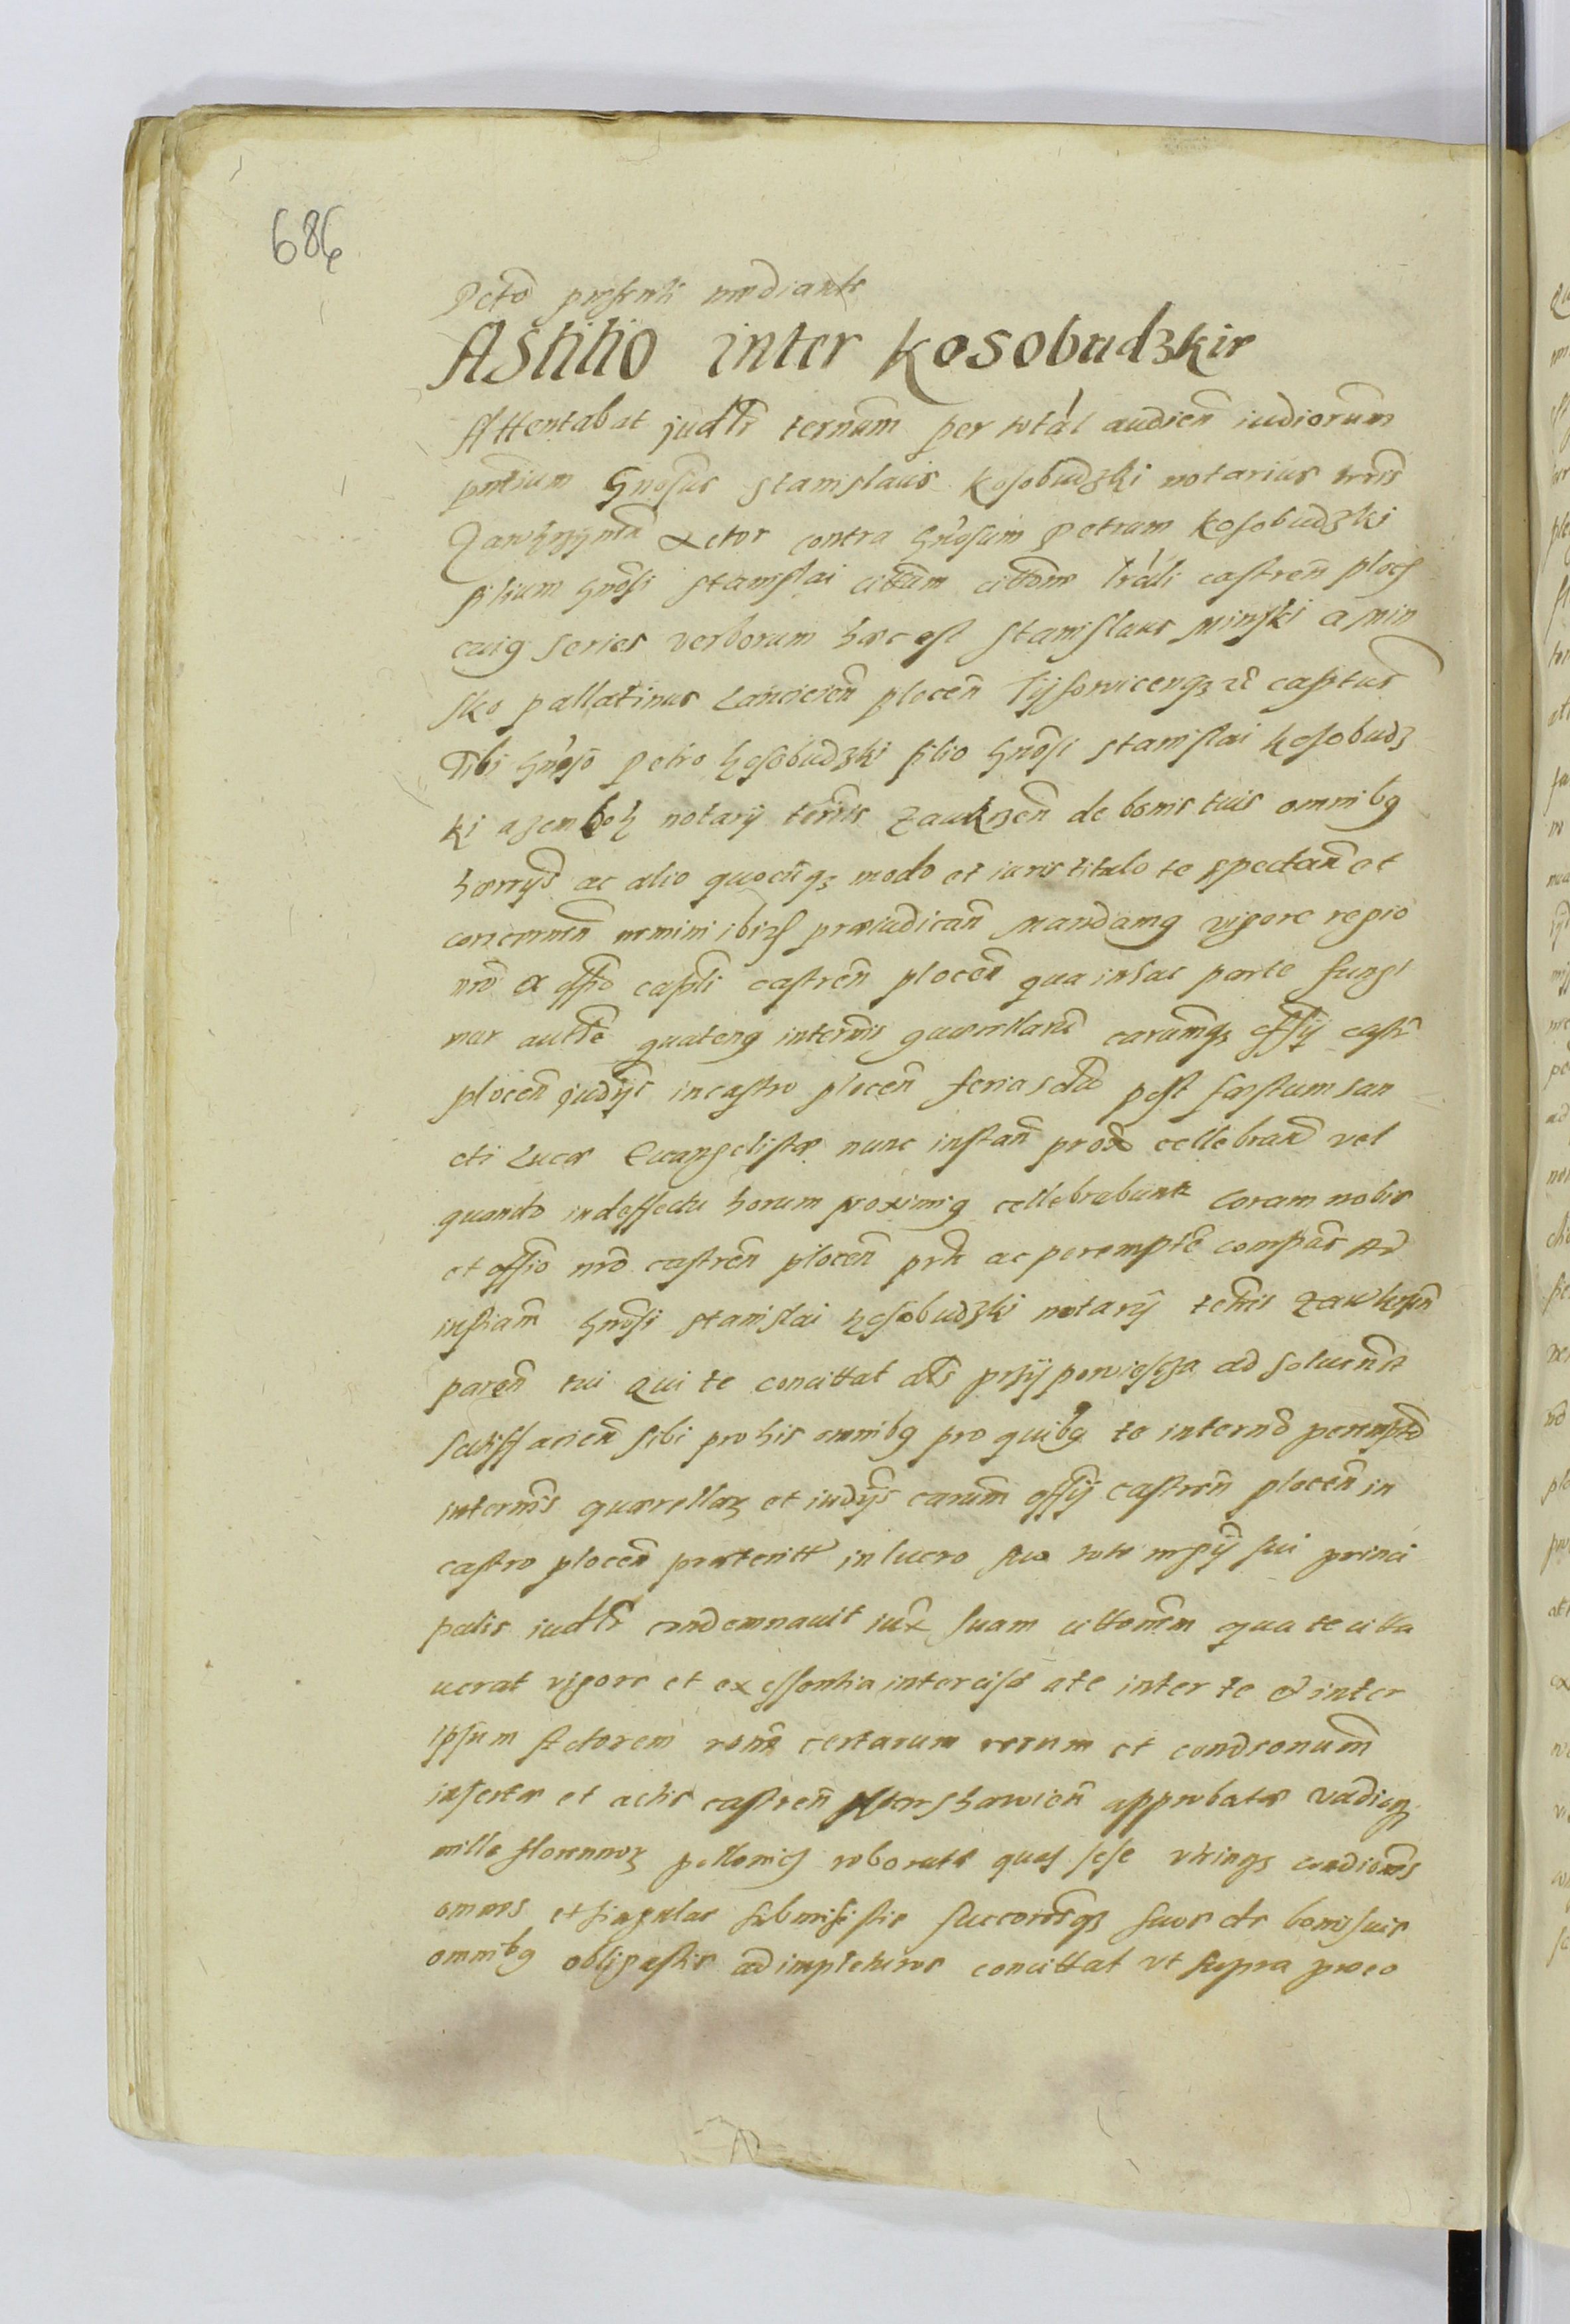 686
Dcto presenti mediante
Astitio inter Kosobudzkie
Attentabat judtr ternum per total audien iudiorum
pntium Gnosus Stanislaus Kosobudzki notarius trris
Zawkrzynen Actor contra Gnosum Petrum Kosobudzki
filium Gnosi Stanislai citatum cittone lrali castren ploc
cuiq series verborum hæc est Stanislaus Minski a Min
sko pallatinus Lancicien plocen capitus
Tibi Gnoso Petro Kosobudzki filio Gnosi Stanislai Kosobudz
ki notarij terris Zawkrzen de bonis tuis omnibq
hærrijs ac alio quocunqz modo et iuris titulo te spectan et
concernen nemini ibi præiudican Mandamq vigore regio
nro et offo capli castren plocen qua in hac parte fungi
mur autte quatenq internis quærellarum earumqz offij castr
plocen judijs in castro plocen feria scda post fæstum san
cti Lucæ Evangelistæ nunc instan prox cellebrand vel
quando in deffectu horum proximiq cellebrabunt Coram nobis
et offio nro castren plocen prlr ac perempte compas Ad
instiam Gnosi Stanislai Kosobudzki notarij terris Zawkrzen
paren tui Qui te concittat ad soluen et
satisffacien sibi pro his omnibq pro quibq te in termo perempto
internis quærellaz et iudijs earum offij castren plocen in
castro plocen præterit in lucro suo sui princi
palis iudtr condemnauit iux suam cittonem qua te citta
uerat vigore et ex essentia intercisæ a te inter te et inter
ipsum Actorem rone certarum rerum et condonum
insertæ et actis castren approbatæ vadioqz
mille florennoz pollonic roboratæ quas sese vtrinqz condiones
omnes et singulas submisistis succoresqz suos de bonis suis
omnibq obligastis adimpleturos concittat vt supra pro eo